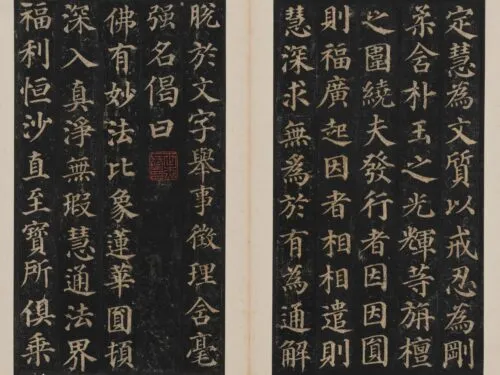 定慧為文質以戒忍為剛
柔含朴玉之光輝等旃檀
之圍繞夫發行者因因圓
則福廣起因者相相遣則
慧深求無為於有為通解
脫於文字舉事徵理含毫
强名偈曰
佛有妙法比象蓮華圓頓
深入真淨無瑕慧通法界
福利恒沙直至寶所俱乘